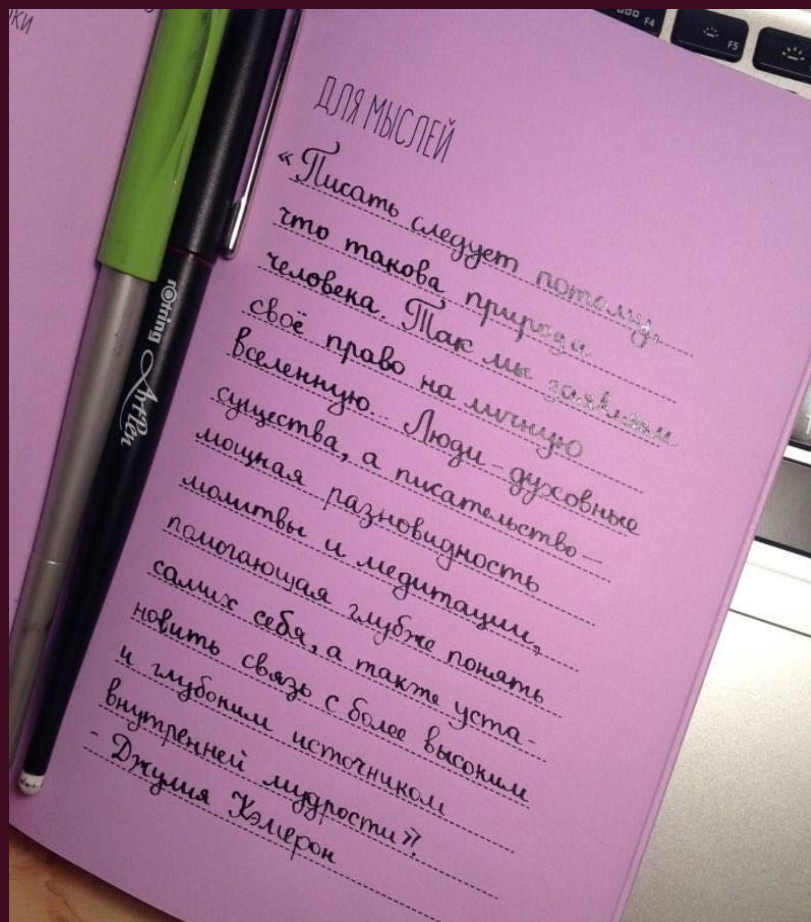 F4
F5
ДЛЯ МЫСЛЕЙ
«Писать следует потому,
что такова природа
человека. Так мы заявляем
своё право на личную
вселенную... Люди – духовные
существа, а писательство –
мощная разновидность
молитвы и медитации,
помогающая глубже понять
самих себя, а также уста-
новить связь с более высоким
и глубоким источником
внутренней мудрости».
- Джулия Кэмерон
rOtring ArtPen